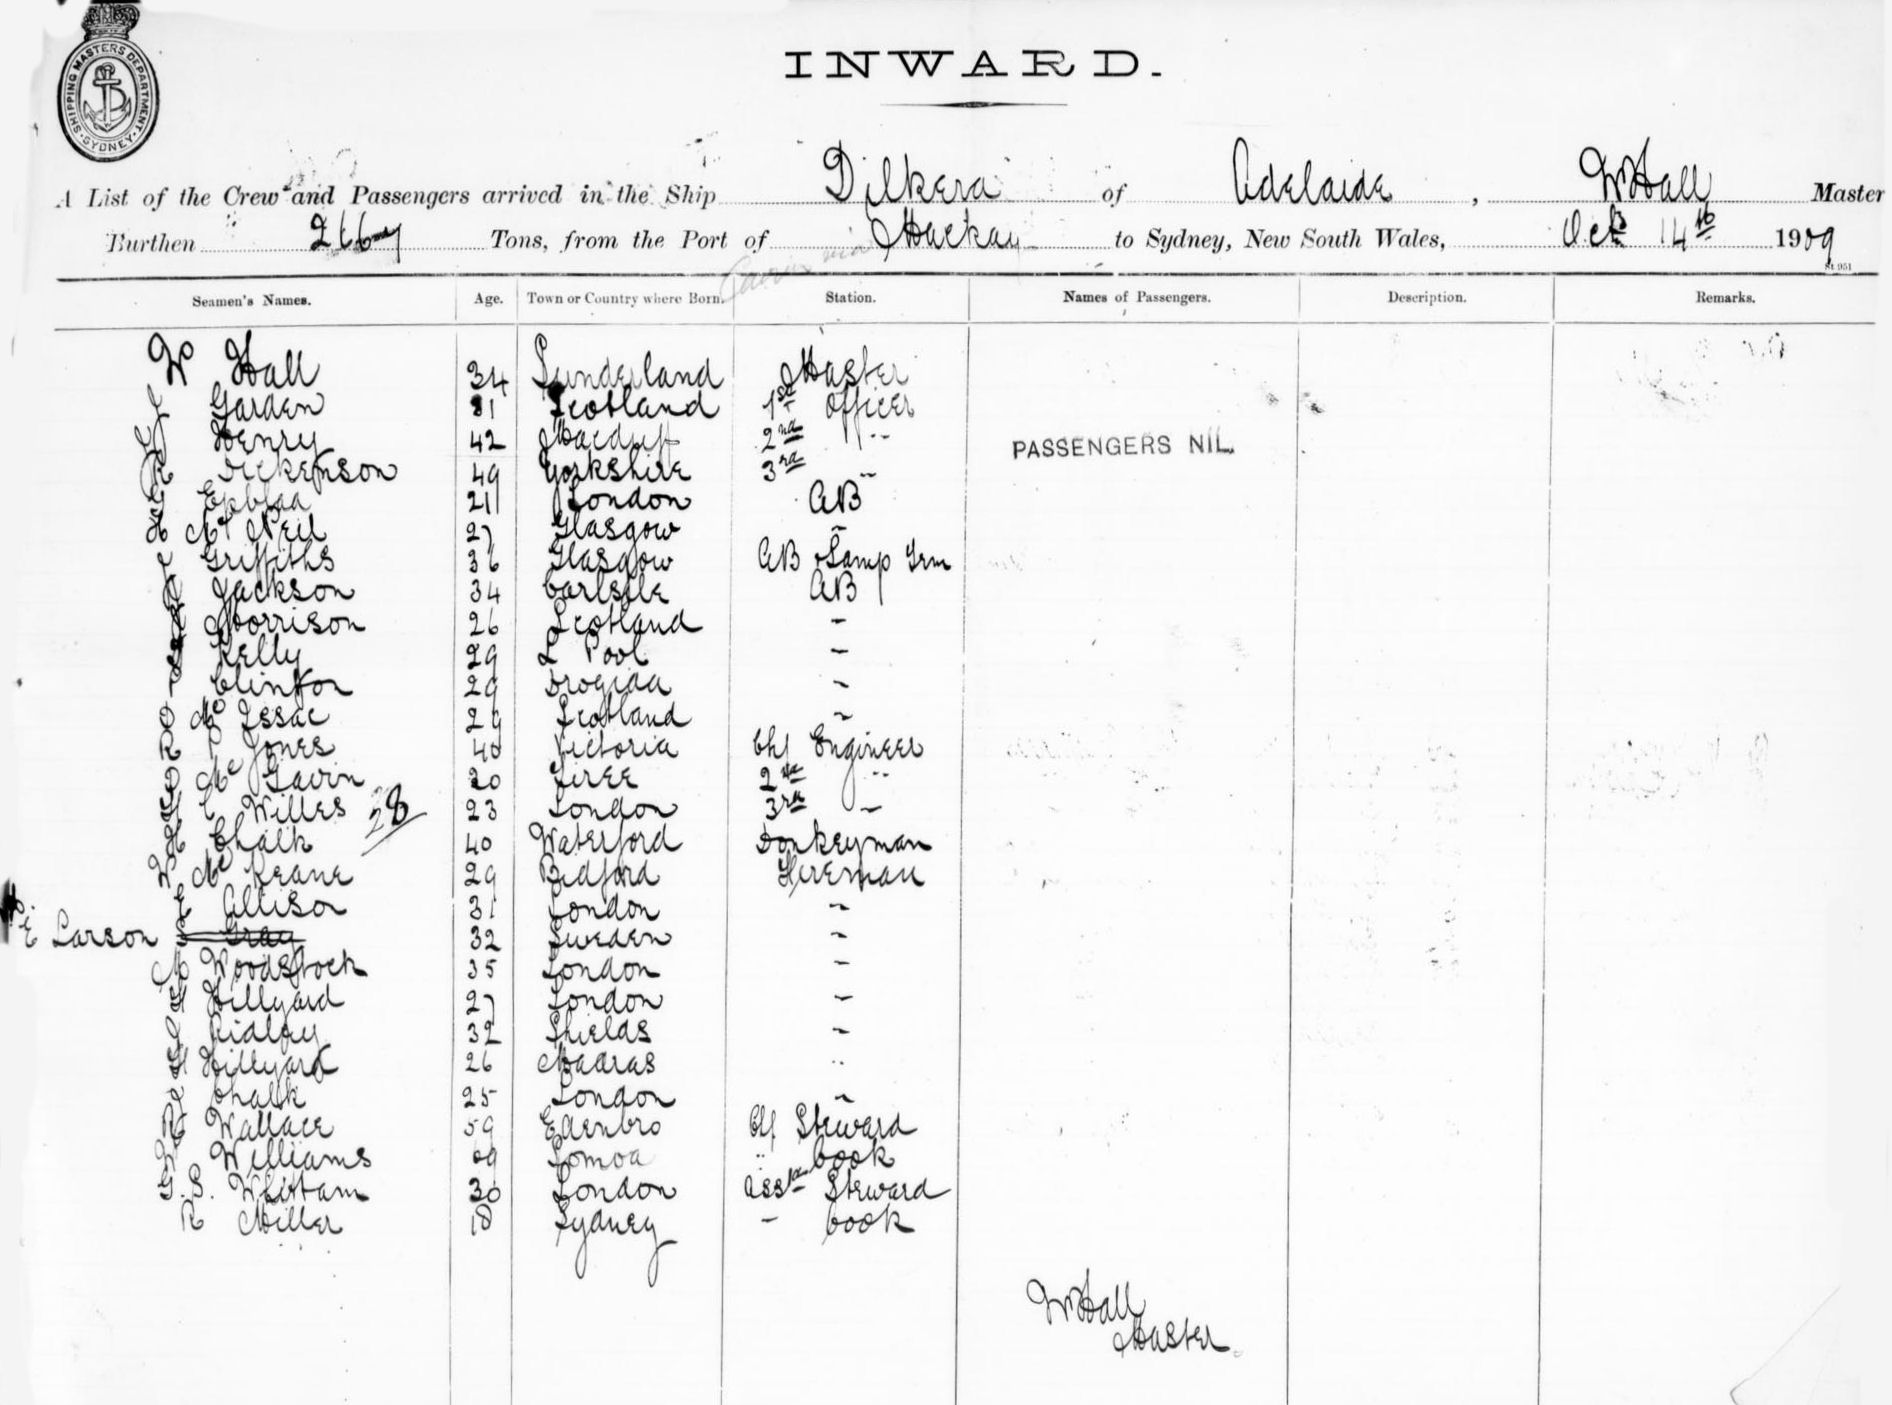 SHIPPING MASTERS DEPARTMENT. SYDNEY
INWARD.
A List of the Crew and Passengers arrived in the Ship Dilkera of Adelaide, W Hall Master
Burthen Tons, from the Port of Mackay to Sydney, New South Wales, Oct 14th 1909
St 951
Seamen's Names. Age. Town or Country where Born. Station. Names of Passengers. Description. Remarks.
W Hall 34 Sunderland Master
J Garden 31 Scotland 1st Officer
Henry 42 Macduff 2nd "
PASSENGERS NIL.
R Dickenson 49 Yorkshire 3rd "
21 London AB
Mc Neil 27 Glasgow "
Griffiths 36 Glasgow AB & Lamp Trm
Jackson 34 Carlsile AB
Morrison 26 Scotland "
Kelly 29 L Pool "
Clinton 29 Drogida "
Mc Issac 29 Scotland "
R P Jones 40 Victoria Chf Engineer
Mc Gavin 20 Tiree 2nd "
C Willes 28 23 London 3rd "
H Chalk 40 Waterford Donkeyman
W Mc Keane 29 Bedford Fireman
Allison 31 London "
E Larson Gray 32 Sweden "
M Woodstock 35 London "
H Hillyard 27 London "
J Ridley 32 Shields "
H Hillyard 26 Madras "
Chalk 25 London "
R Wallace 59 Edenbro Chf Steward
W Williams 69 Somoa " Cook
G. S. Whittam 30 London Asst Steward
R Miller 18 Sydney " Cook
W Hall
Master